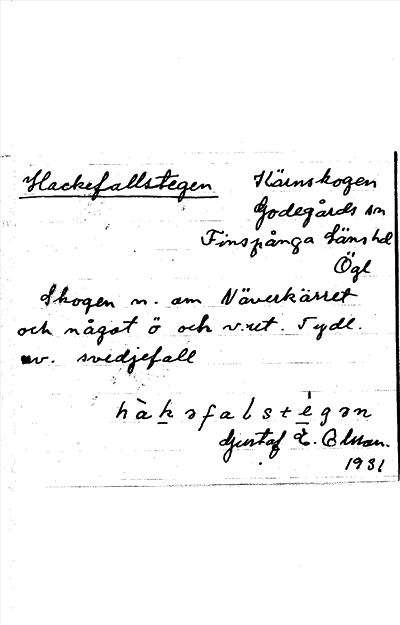 Hackefallstegen
Kärnskogen
Godegårds sn
Finspånga läns hd
Ögl
Skogen n. om Näverkärret
och något ö och v. ut. Tydl.
ev. svedjefall
hàkəfalstégən
Gustaf E. Olsson.
1931